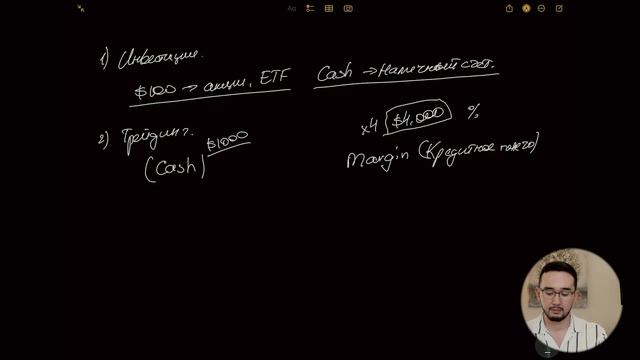 1) Инвестиции.
$100 → акции, ETF
Cash → Наличный счет.
2) Трейдинг.
(Cash) $1000
x4 $4,000 %
Margin (Кредитное плечо)
Aa